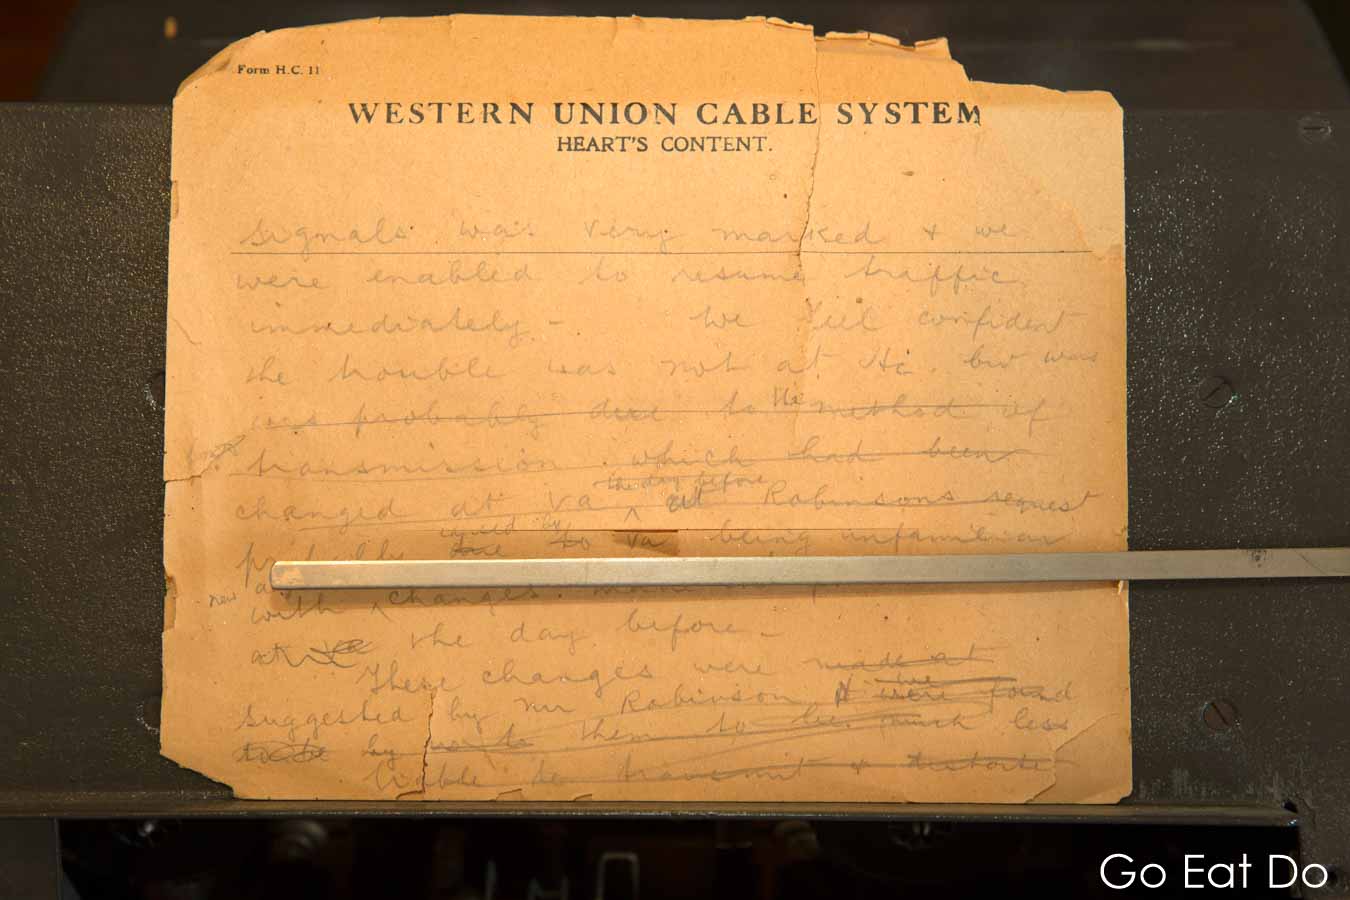 Form H.C. 11
WESTERN UNION CABLE SYSTEM
HEART'S CONTENT.
signals was very marked & we
were enabled to resume traffic
immediately – We feel confident
the trouble was not at Hc. but was
was probably due to the method of
transmission which had been
the day before
changed at Va at Robinsons request
by
due to Va being unfamiliar
new
with changes.
at the day before –
These changes were made at
we
suggested by mr Robinson were found
to be by them to be much less
liable to transmit &
Go Eat Do